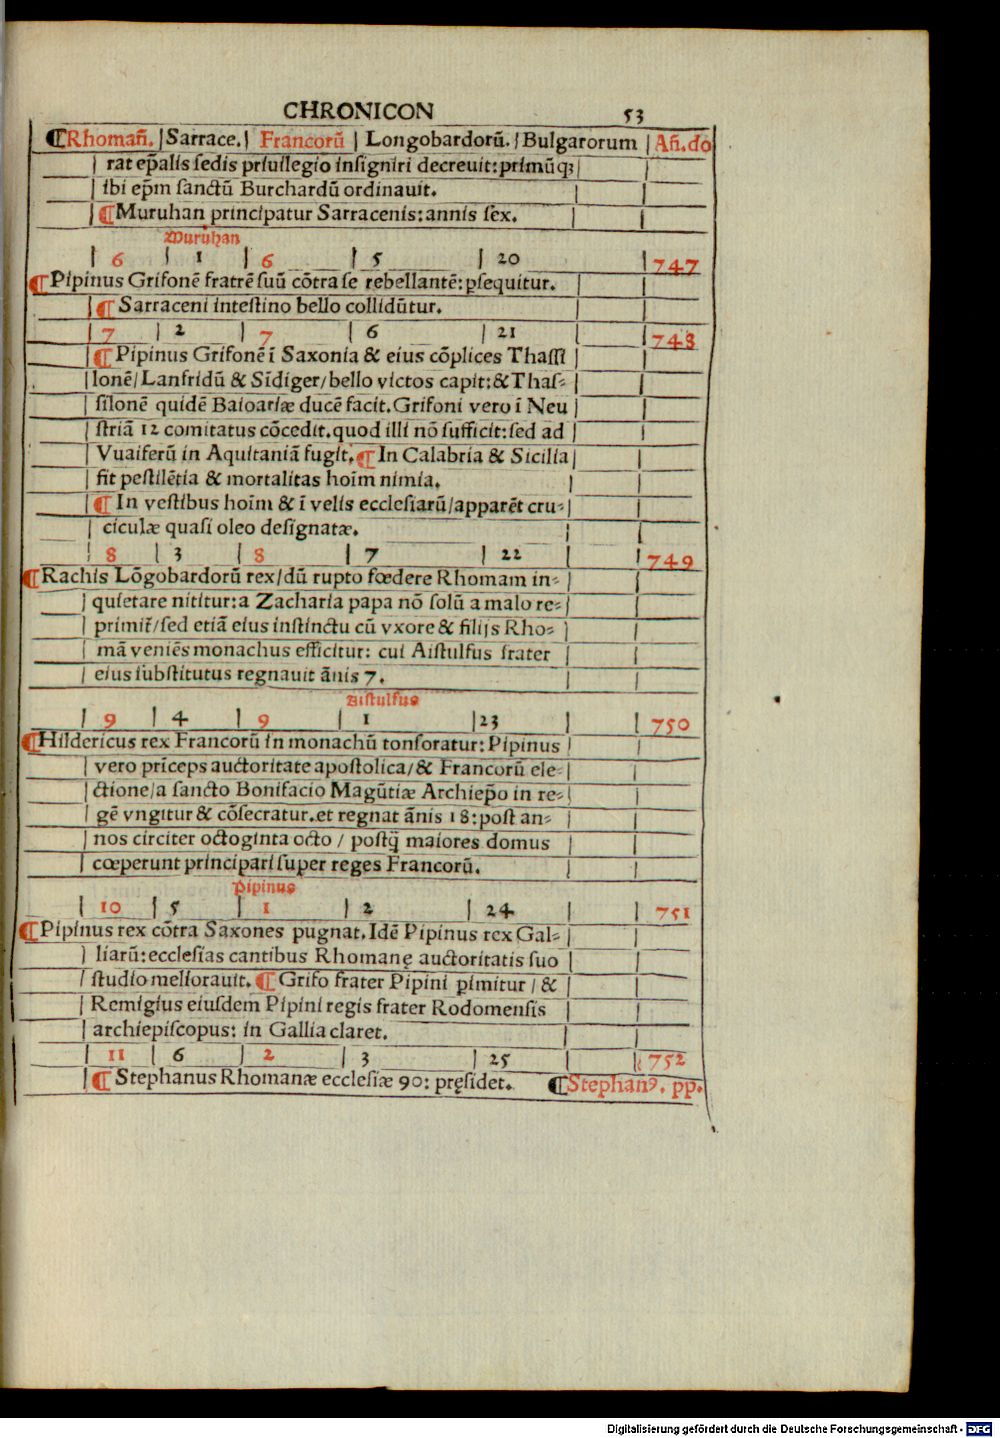 CHRONICON 53
¶Rhomañ. | Sarrace. | Francorū | Longobardorū. | Bulgarorum | Añ. do
rat ep̄alis sedis priuilegio insigniri decreuit: primūq;
ibi ep̄m sanctū Burchardū ordinauit.
¶Muruhan principatur Sarracenis: annis sex.
Muruhan
6 | 1 | 6 | 5 | 20 | 747
¶Pipinus Grifonē fratrē suū cōtra se rebellantē: ꝑsequitur.
¶Sarraceni intestino bello collidūtur.
7 | 2 | 7 | 6 | 21 | 748
¶Pipinus Grifonē ī Saxonia & eius cōplices Thassi
lonē/ Lanfridū & Sīdiger/ bello victos capit: & Thas⸗
silonē quidē Baioariæ ducē facit. Grifoni vero ī Neu
striā 12 comitatus cōcedit. quod illi nō sufficit: sed ad
Vuaiferū in Aquitaniā fugit. ¶In Calabria & Sicilia
fit pestilētia & mortalitas hoīm nimia.
¶In vestibus hoīm & ī velis ecclesiarū/ apparēt cru⸗
ciculæ quasi oleo designatæ.
8 | 3 | 8 | 7 | 22 | 749
¶Rachis Lōgobardorū rex/ dū rupto fœdere Rhomam in⸗
quietare nititur: a Zacharia papa nō solū a malo re⸗
primit̄/ sed etiā eius instinctu cū vxore & filijs Rho⸗
mā veniēs monachus efficitur: cui Aistulfus frater
eius substitutus regnauit ānis 7.
Aistulfus
9 | 4 | 9 | 1 | 23 | 750
¶Hildericus rex Francorū in monachū tonsoratur: Pipinus
vero prīceps auctoritate apostolica/ & Francorū ele⸗
ctione/ a sancto Bonifacio Magūtiæ Archiep̄o in re⸗
gē vngitur & cōsecratur. et regnat ānis 18: post an⸗
nos circiter octoginta octo / postq̄ maiores domus
cœperunt principari super reges Francorū.
Pipinus
10 | 5 | 1 | 2 | 24 | 751
¶Pipinus rex cōtra Saxones pugnat. Idē Pipinus rex Gal⸗
liarū: ecclesias cantibus Rhomanę auctoritatis suo
studio meliorauit. ¶Grifo frater Pipini ꝑimitur / &
Remigius eiusdem Pipini regis frater Rodomensis
archiepiscopus: in Gallia claret.
11 | 6 | 2 | 3 | 25 | 752
¶Stephanus Rhomanæ ecclesiæ 90: pręsidet. ¶Stephanꝰ. pp.
Digitalisierung gefördert durch die Deutsche Forschungsgemeinschaft - DFG